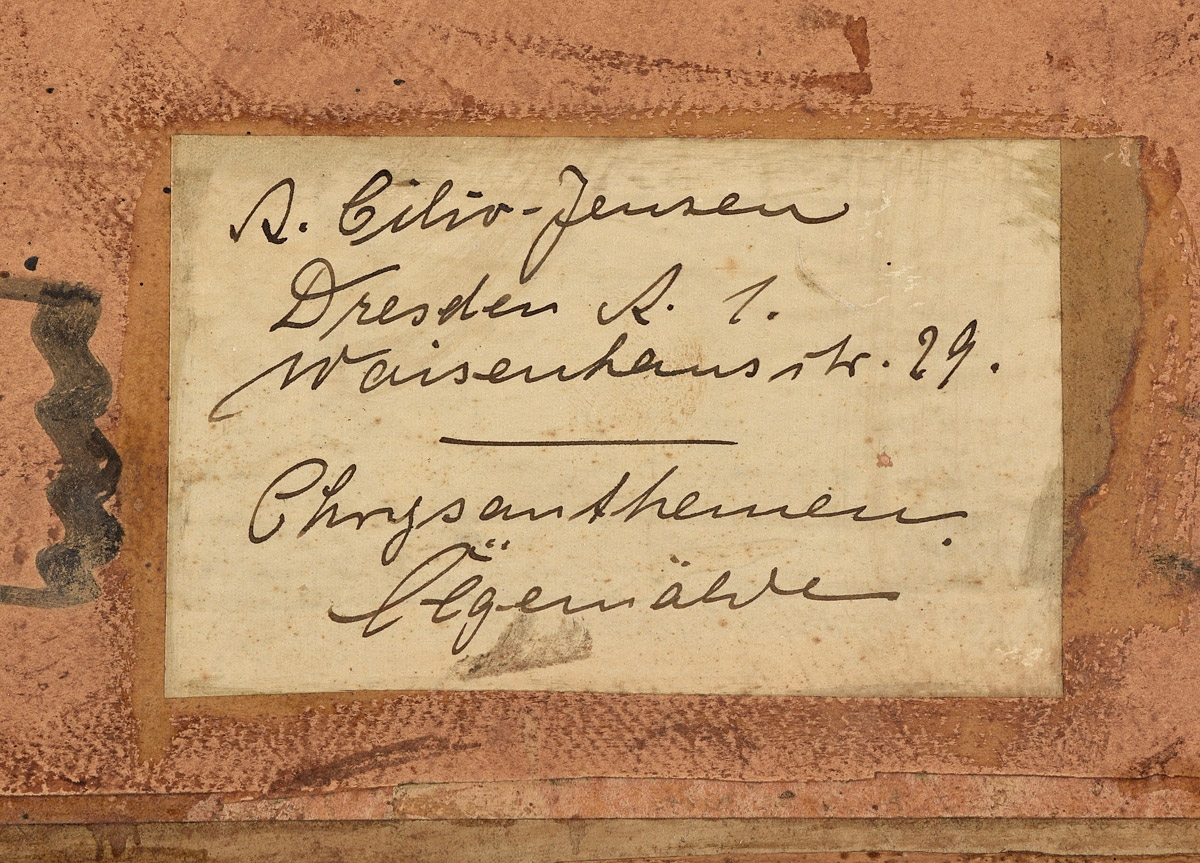 A. Cilio-Jensen
Dresden A. 1.
Waisenhausstr. 29.
Chrysanthemen.
Ölgemälde